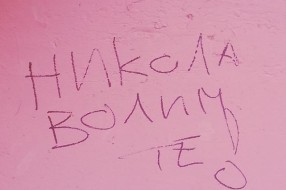 НИКОЛА
ВОЛИМ
TE